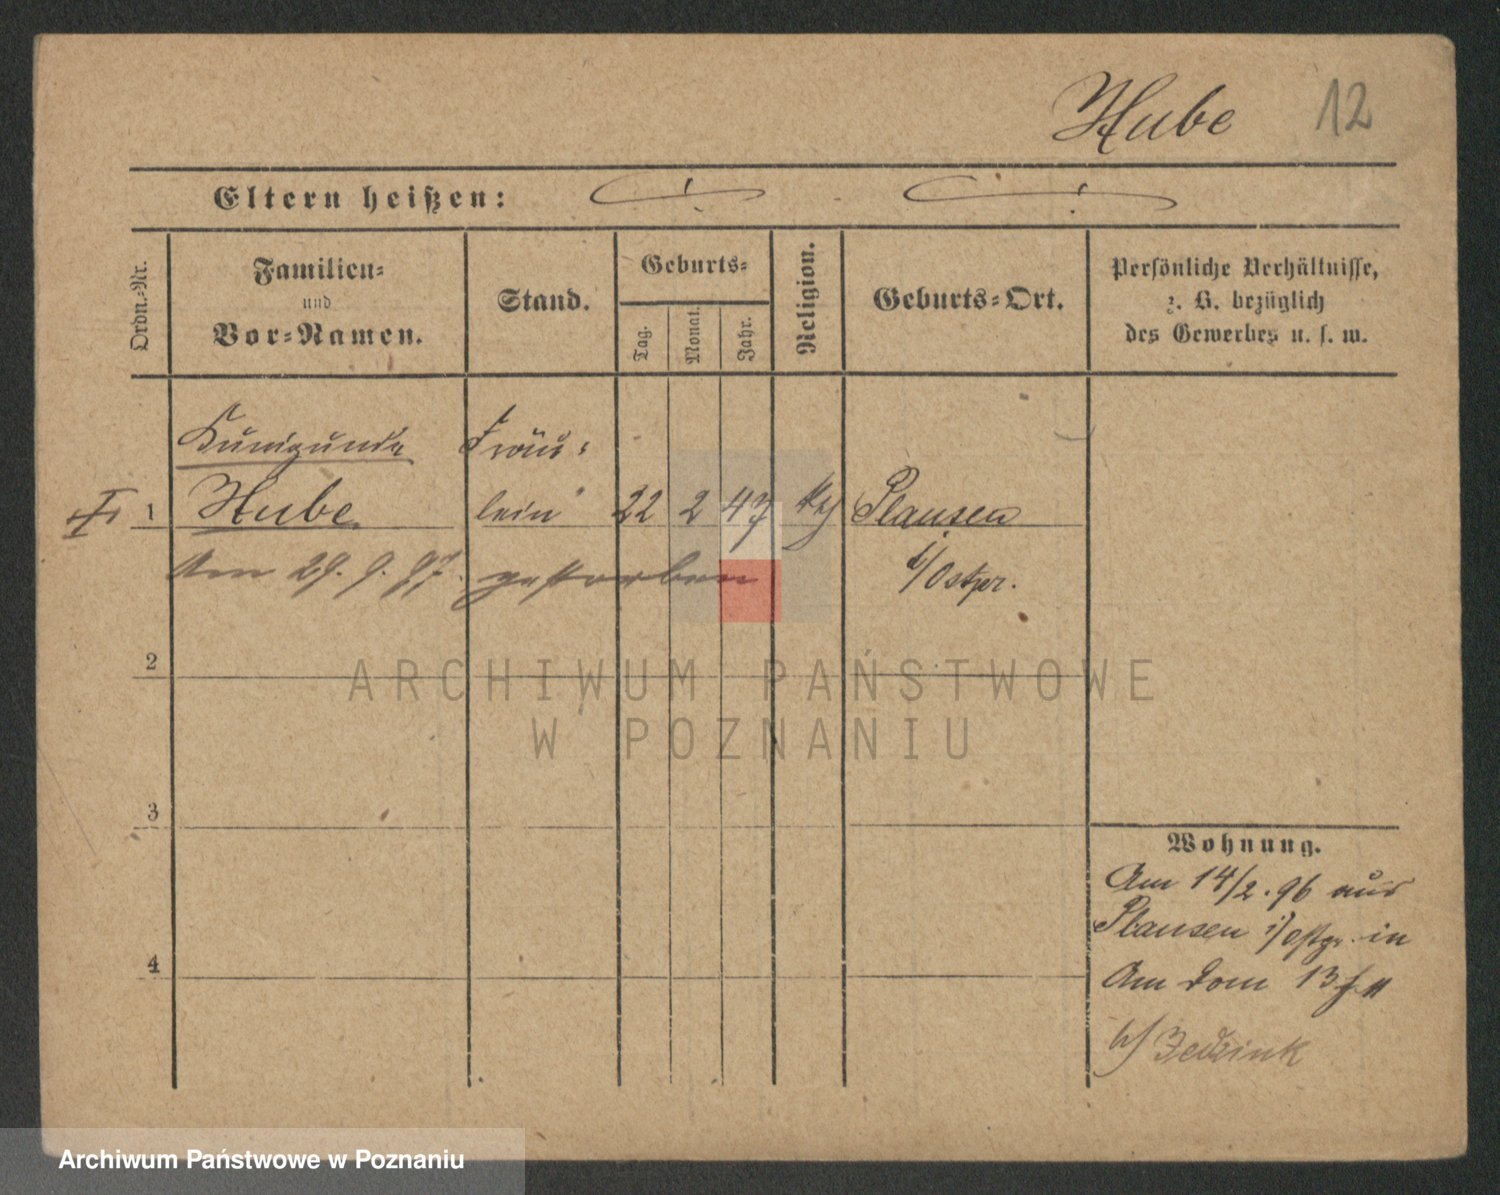 Hube 12
Eltern heißen:
Ordn.-Nr.
Familien-
und
Vor-Namen.
Stand.
Geburts-
Tag.
Monat.
Jahr.
Religion.
Geburts-Ort.
Persönliche Verhältnisse,
z. B. bezüglich
des Gewerbes u. s. w.
Kunigunde Fräu-
I 1 Hube lein 22 2 47 Plausen
Am 29. 9. 97. gestorben i/Ostpr.
2
3
4
Wohnung.
Am 14/2. 96 aus
Plausen i/Ostpr. in
Am Dom 13
b/
ARCHIWUM PAŃSTWOWE
W POZNANIU
Archiwum Państwowe w Poznaniu